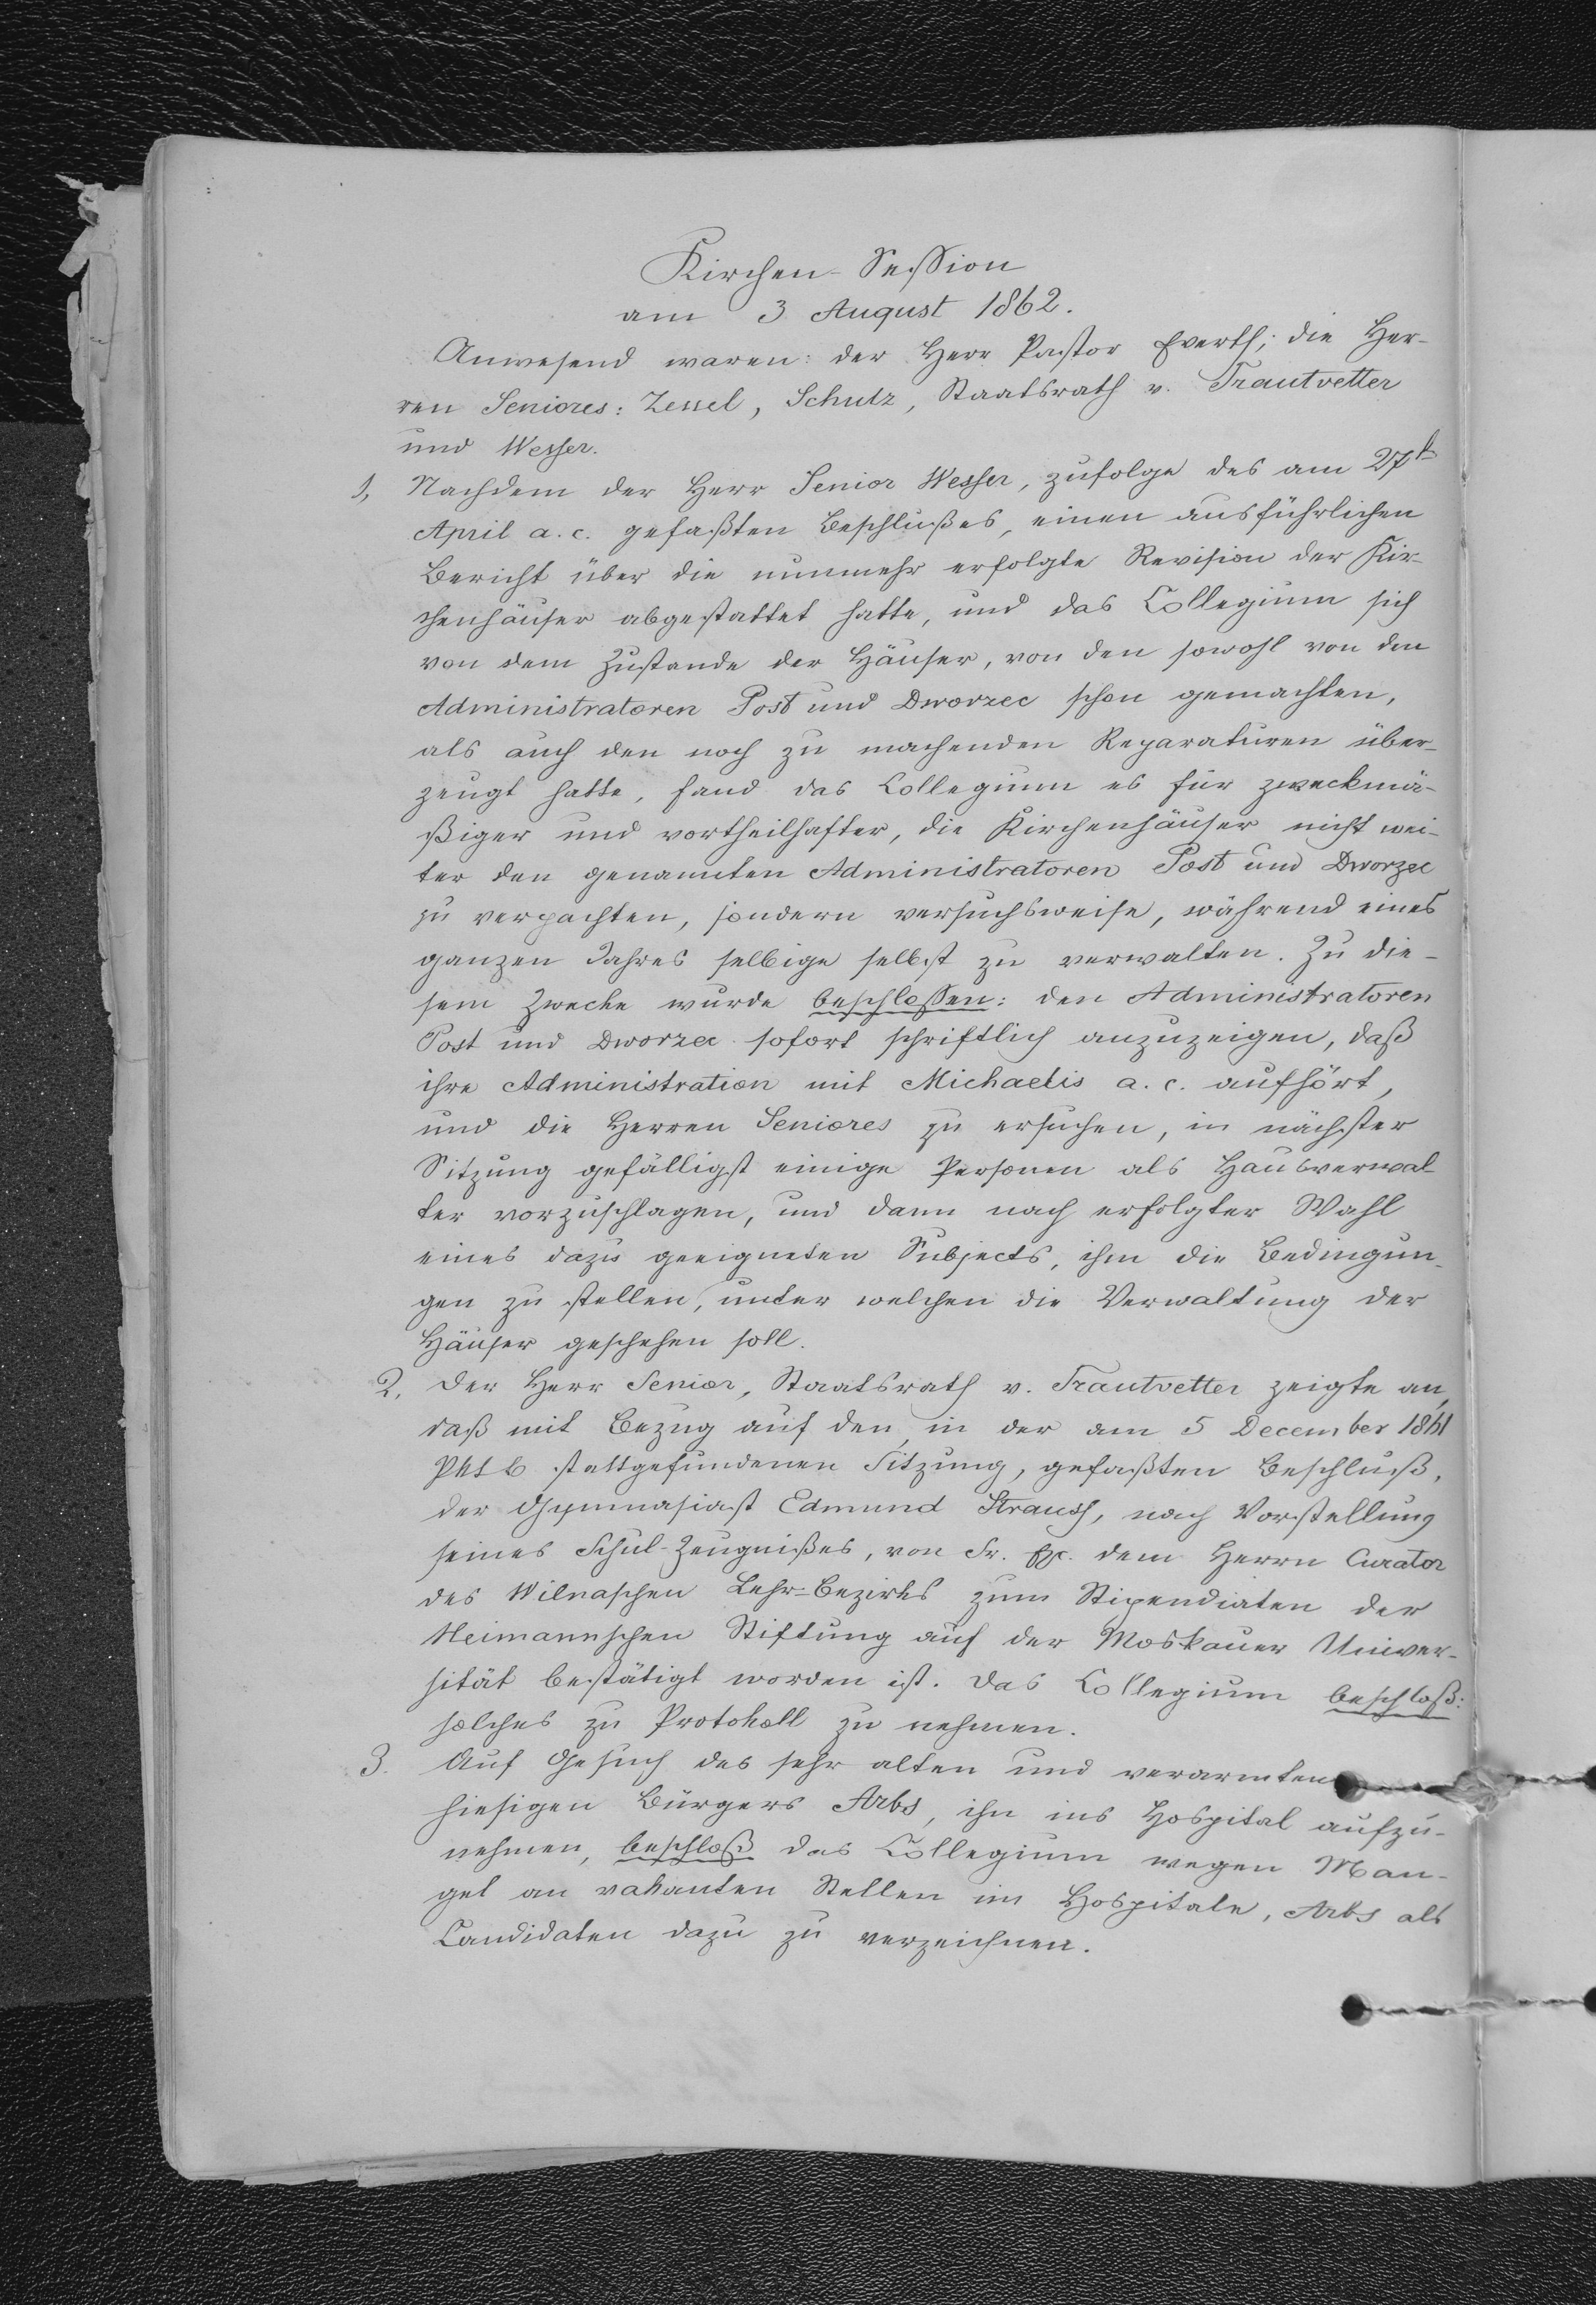 Kirchen-Session
am 3 August 1862.
Anwesend waren: der Herr Pastor Everth; die Her-
ren Seniores: Zessel, Schulz, Staatsrath v. Trautvetter
und Wesser.
1, Nachdem der Herr Senior Wesser, zufolge des am 27t
April a. c. gefaßten Beschlußes, einen ausführlichen
Bericht über die nunmehr erfolgte Revision der Kir-
chenhäuser abgestattet hatte, und das Collegium sich
von dem Zustande der Häuser, von den sowohl von den
Administratoren Post und Dworzec schon gemachten,
als auch den noch zu machenden Reparaturen über-
zeugt hatte, fand das Collegium es für zweckmä-
ßiger und vortheilhafter, die Kirchenhäuser nicht wei-
ter den genannten Administratoren Post und Dworzec
zu verpachten, sondern versuchsweise, während eines
ganzen Jahres selbige selbst zu verwalten. Zu die-
sem Zwecke wurde beschlossen: den Administratoren
Post und Dworzec sofort schriftlich anzuzeigen, daß
ihre Administration mit Michaelis a. c. aufhört,
und die Herren Seniores zu ersuchen, in nächster
Sitzung gefälligst einige Personen als Hausverwal-
ter vorzuschlagen, und dann nach erfolgter Wahl
eines dazu geeigneten Subjects, ihm die Bedingun-
gen zu stellen, unter welchen die Verwaltung der
Häuser geschehen soll.
2. Der Herr Senior, Staatsrath v. Trautvetter zeigte an,
daß mit Bezug auf den, in der am 5 December 1861
stattgefundenen Sitzung, gefaßten Beschluß,
der Gymnasiast Edmund Strauss, nach Vorstellung
seines Schul-Zeugnißes, von Sr. Ex. dem Herrn Curator
des Wilnaschen Lehr-Bezirks zum Stipendiaten der
Heimannschen Stiftung auf der Moskauer Univer-
sität bestätigt worden ist. Das Collegium beschloß:
solches zu Protokoll zu nehmen.
3. Auf Gesuch des sehr alten und verarmten
hiesigen Bürgers Arbs, ihn ins Hospital aufzu-
nehmen, beschloß das Collegium wegen Man-
gel an vakanten Stellen im Hospitale, Arbs als
Candidaten dazu zu verzeichnen.